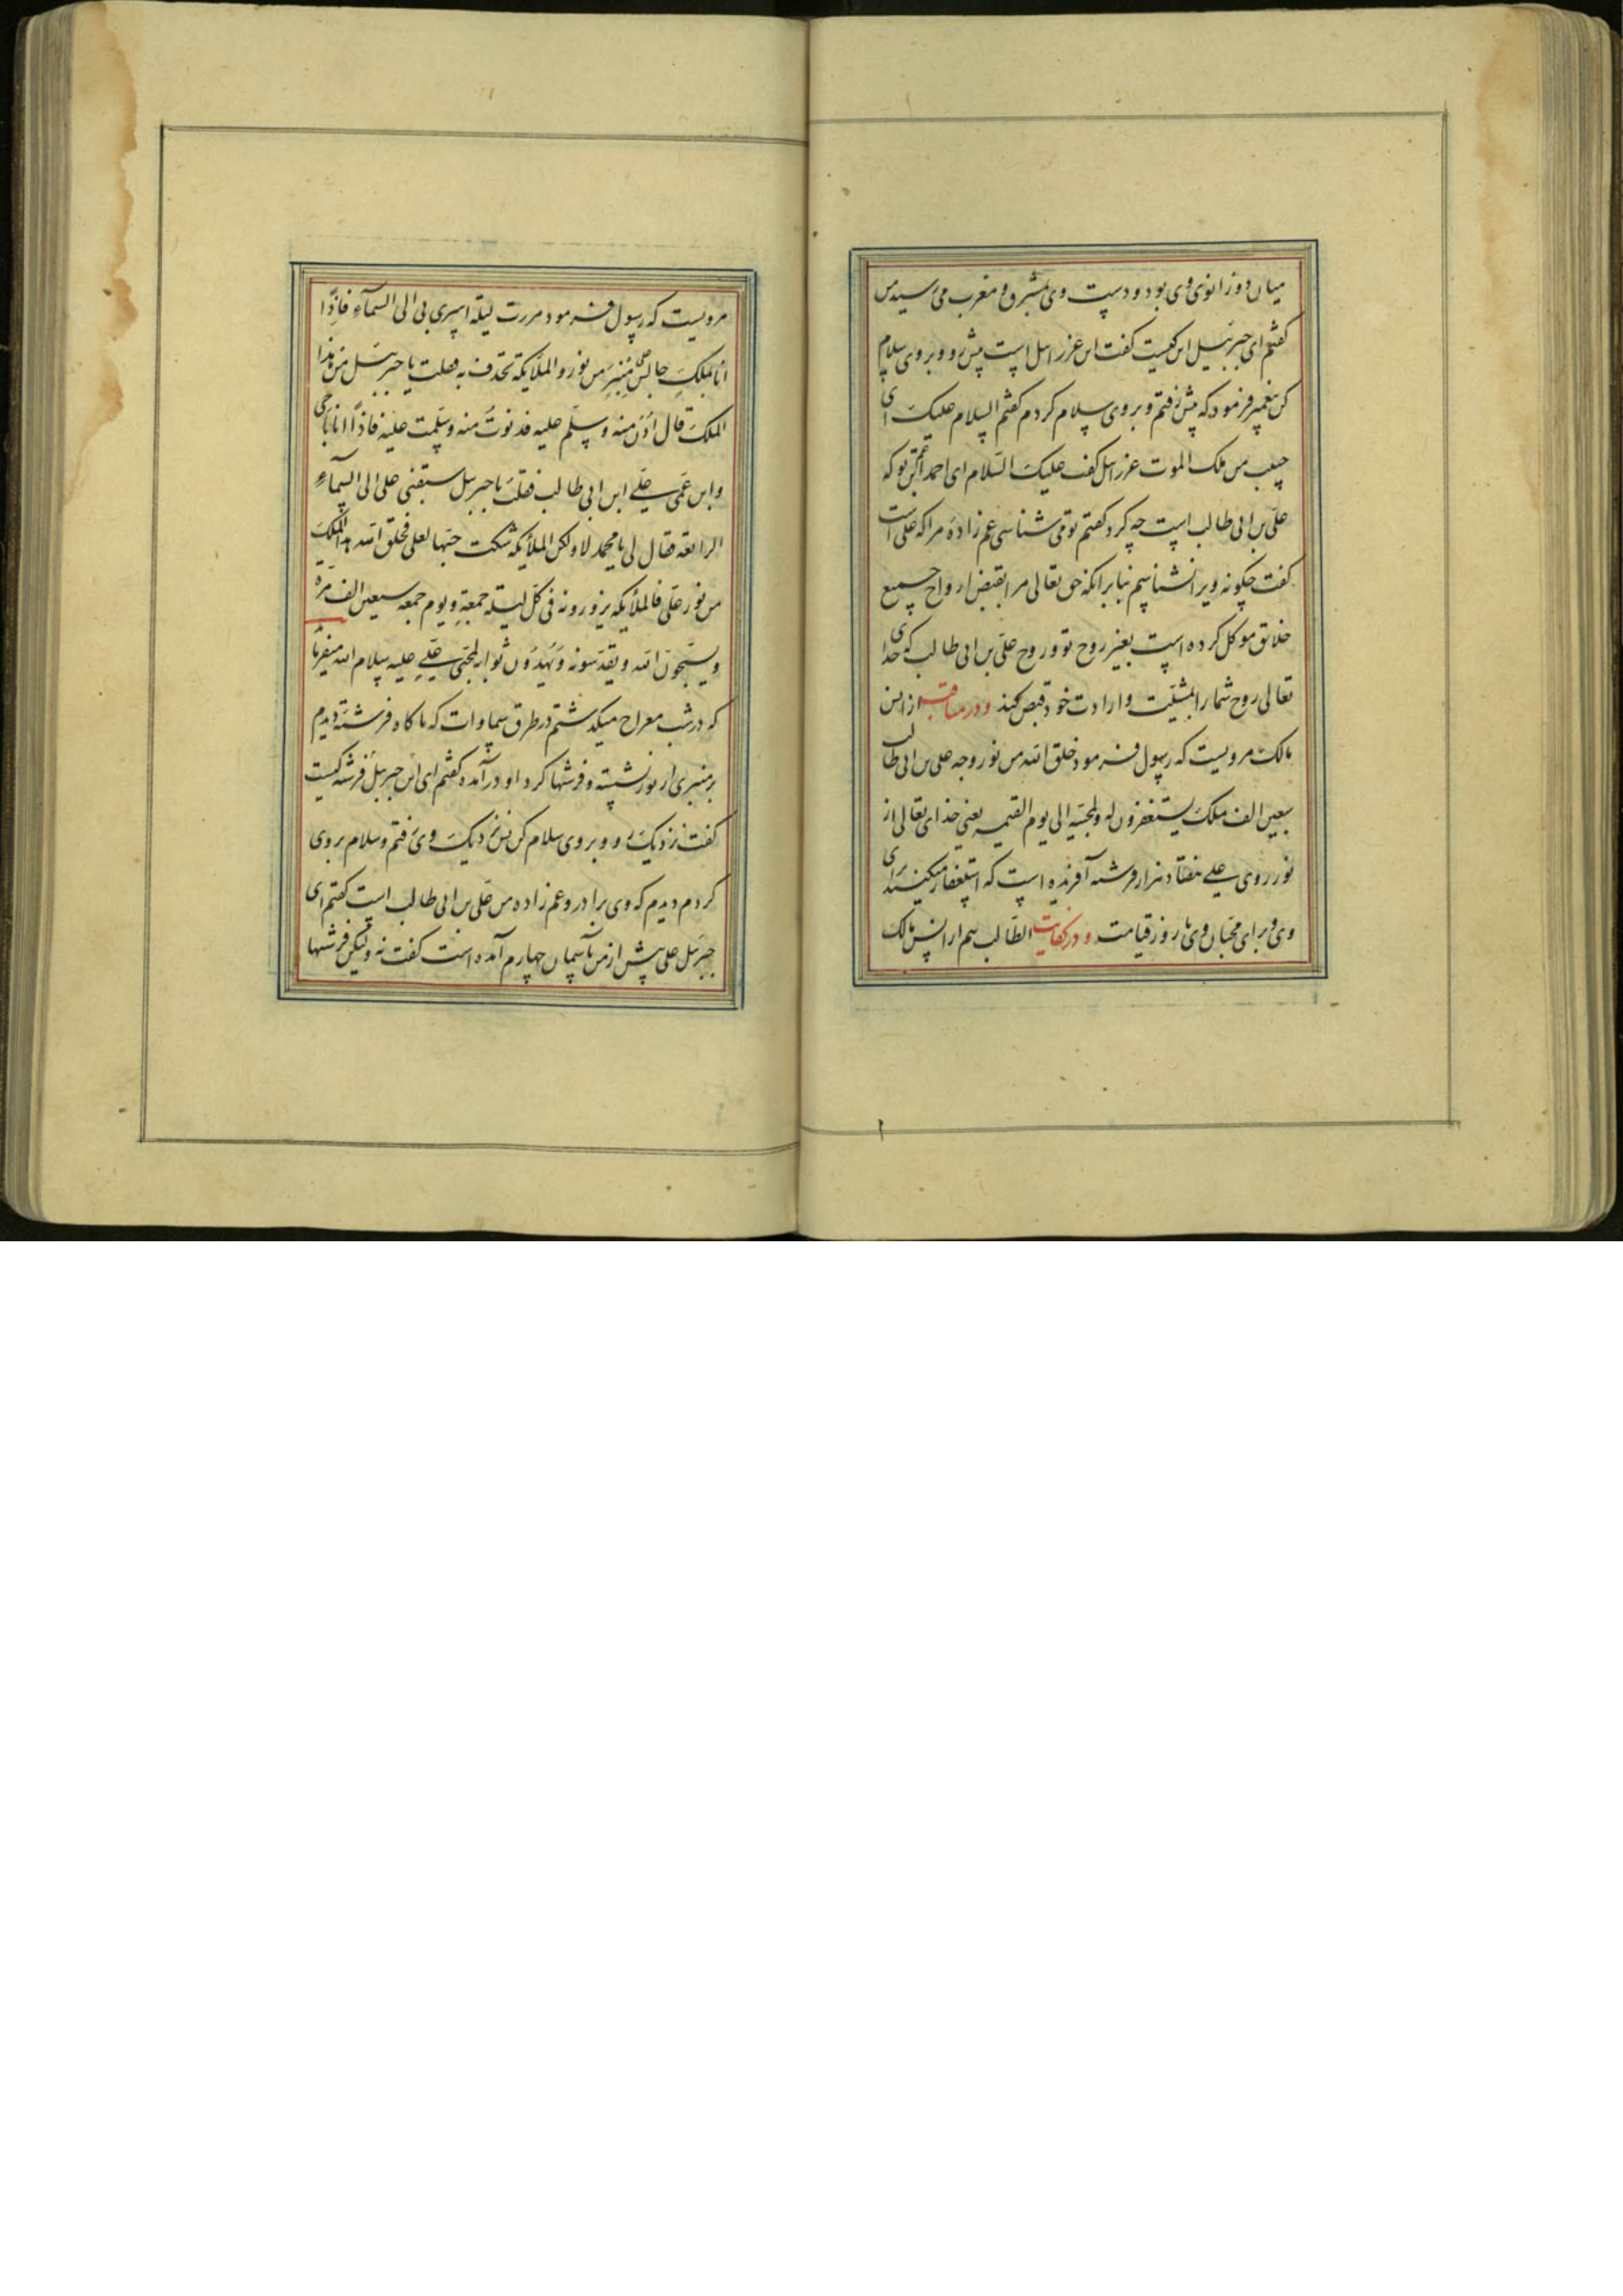 میان دو زانوی وی بود و دست وی بمشرق و مغرب می رسید من
گفتم ای جبرئیل این کیست گفت این عزرائیل است پیش رو و بر وی سلام
کن پیغمبر فرمود که پیش رفتم و بر وی سلام کردم گفتم السلام علیک ای
حبیب من ملک الموت عزرائیل گفت علیک السلام ای احمد ابن عم تو که
علی بن ابی طالب است چه کرد گفتم تو می شناسی عم زاده مرا که علی است
گفت چگونه ویرا نشناسیم بنابر انکه حق تعالی مرا بقبض ارواح جمیع
خلائق موکل کرده است بغیر روح تو و روح علی بن ابی طالب که خدای
تعالی روح شما را بمشیت و ارادت خود قبض کند و در مناقب از انس
مالک مرویست که رسول فرمود خلق الله من نور وجه علی بن ابی طالب
سبعین الف ملک یستغفرون له ولمحبیه الی یوم القیمه یعنی خدای تعالی از
نور روی علی هفتاد هزار فرشته آفریده است که استغفار میکنند برای
وی و برای محبان وی تا روز قیامت و در کفایت الطالب هم از انس مالک
مرویست که رسول فرمود مررت لیلة اسری بی الی السمآء فاذا
انا بملک جالس علی منبر من نور والملائکة تحدف به فقلت یا جبرئیل من هذا
الملک قال ادن منه وسلم علیه فدنوت منه وسلمت علیه فاذا انا باخی
وابن عمی علی ابن ابی طالب فقلت یا جبرئیل سبقنی علی الی السمآء
الرابعة فقال لی یا محمد لا ولکن الملائکة شکت حبها لعلی فخلق الله هذا الملک
من نور علی فالملائکة یزورونه فی کل لیلة جمعة ویوم جمعه سبعین الف مرة
ویسبحون الله ویقدسونه ویهدون ثوابه لمحبی علی علیه سلام الله میفرماید
که در شب معراج میگذشتم در طرق سماوات که ناگاه فرشته دیدم
بر منبری از نور نشسته و فرشتها کرد او درآمده گفتم ای جبرئیل این فرشته کیست
گفت نزدیک رو و بر وی سلام کن من نزدیک وی رفتم و سلام بر وی
کردم دیدم که وی برادر و عم زاده من علی بن ابی طالب است گفتم ای
جبرئیل علی پیش از من بآسمان چهارم آمده است گفت نه ولیکن فرشتها